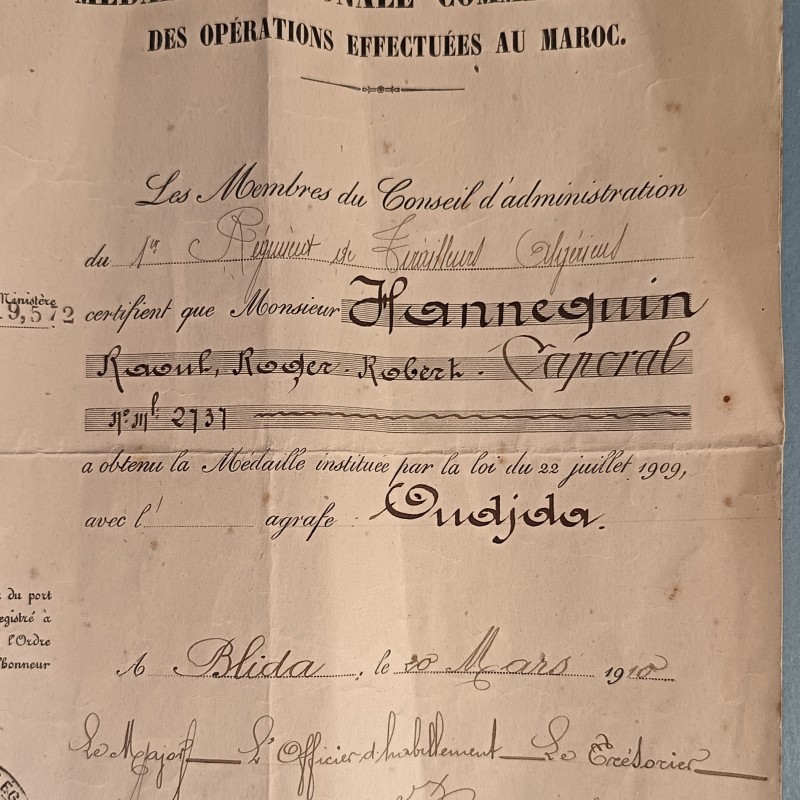 DES OPÉRATIONS EFFECTUÉES AU MAROC.
Les Membres du Conseil d'administration
du 1er Régiment de Tirailleurs Algériens
Ministère
9,572
certifient que Monsieur Hannequin
Raoul, Roger - Robert - Caporal
No Mle 2737
a obtenu la Médaille instituée par la loi du 22 juillet 1909,
avec l' agrafe Oudjda.
du port
à
l'Ordre
A Blida, le 20 Mars 1910
Le Major — L'Officier d'habillement — Le Trésorier —